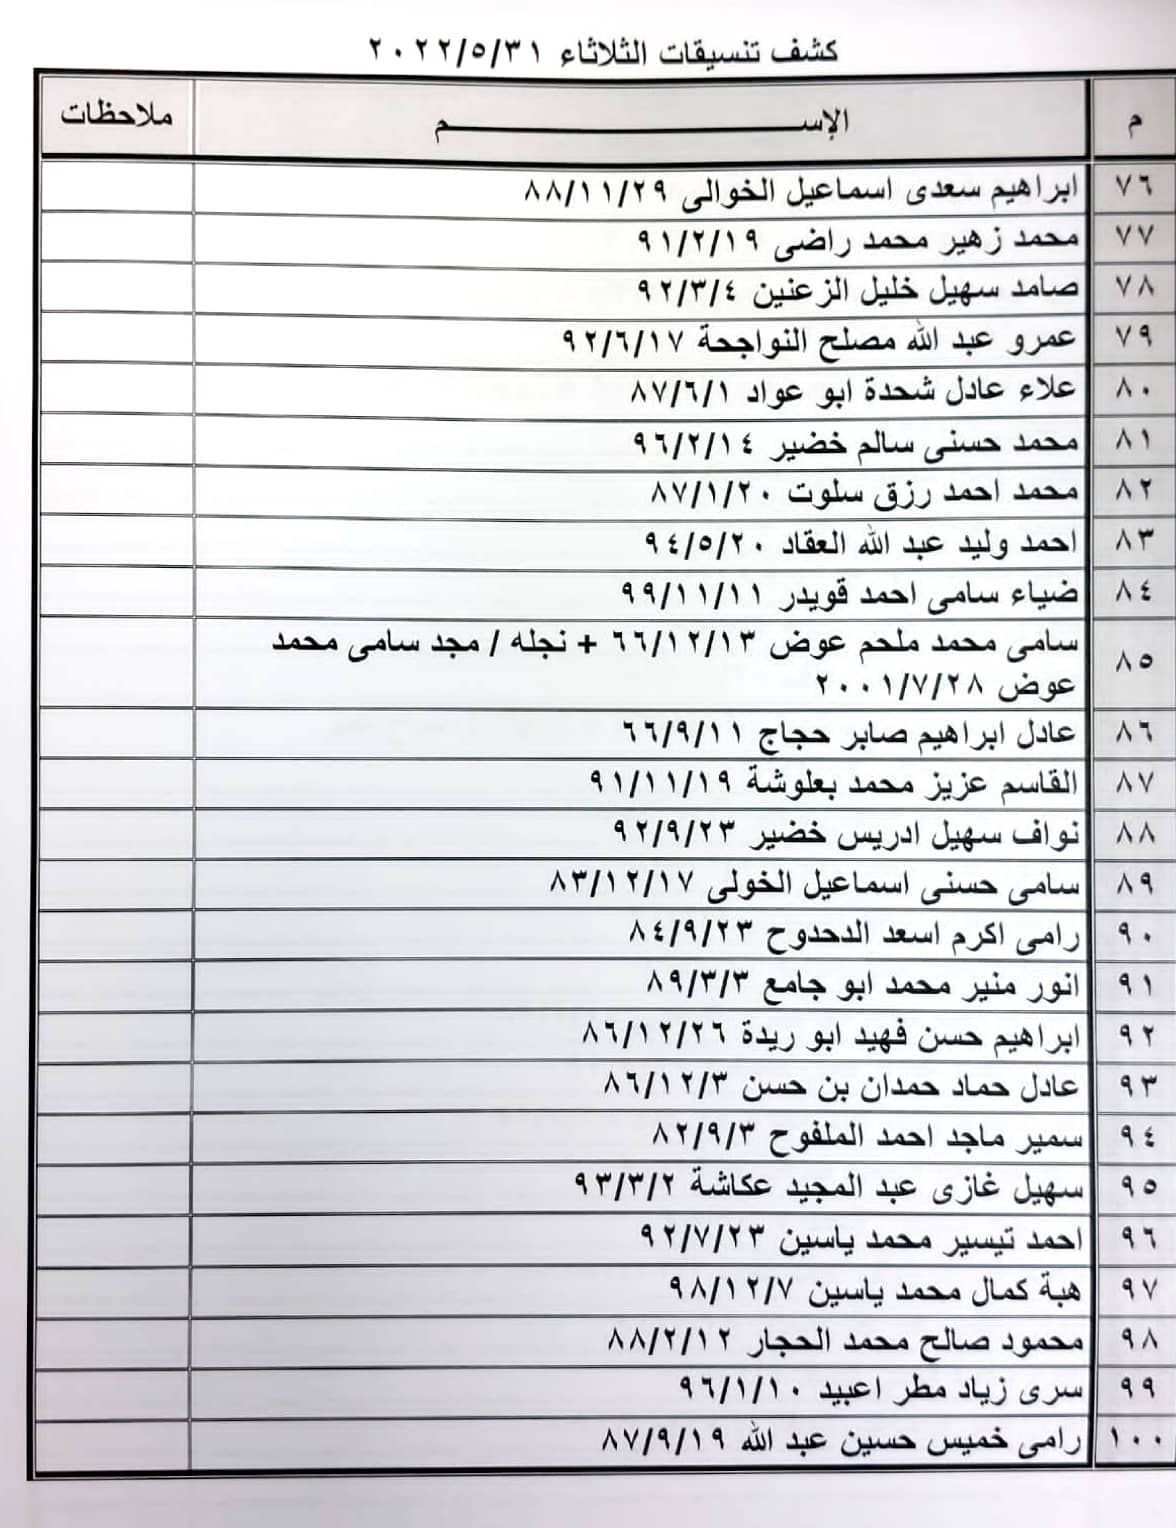 كشف تنسيقات الثلاثاء ٢٠٢٢/٥/٣١
م الإســـــــــــــــــــم ملاحظات
٧٦ ابراهيم سعدى اسماعيل الخوالى ٨٨/١١/٢٩
٧٧ محمد زهير محمد راضى ٩١/٢/١٩
٧٨ صامد سهيل خليل الزعنين ٩٢/٣/٤
٧٩ عمرو عبد الله مصلح النواجحة ٩٢/٦/١٧
٨٠ علاء عادل شحدة ابو عواد ٨٧/٦/١
٨١ محمد حسنى سالم خضير ٩٦/٢/١٤
٨٢ محمد احمد رزق سلوت ٨٧/١/٢٠
٨٣ احمد وليد عبد الله العقاد ٩٤/٥/٢٠
٨٤ ضياء سامى احمد قويدر ٩٩/١١/١١
٨٥ سامى محمد ملحم عوض ٦٦/١٢/١٣ + نجله / مجد سامى محمد
عوض ٢٠٠١/٧/٢٨
٨٦ عادل ابراهيم صابر حجاج ٦٦/٩/١١
٨٧ القاسم عزيز محمد بعلوشة ٩١/١١/١٩
٨٨ نواف سهيل ادريس خضير ٩٢/٩/٢٣
٨٩ سامى حسنى اسماعيل الخولى ٨٣/١٢/١٧
٩٠ رامى اكرم اسعد الدحدوح ٨٤/٩/٢٣
٩١ انور منير محمد ابو جامع ٨٩/٣/٣
٩٢ ابراهيم حسن فهيد ابو ريدة ٨٦/١٢/٢٦
٩٣ عادل حماد حمدان بن حسن ٨٦/١٢/٣
٩٤ سمير ماجد احمد الملفوح ٨٢/٩/٣
٩٥ سهيل غازى عبد المجيد عكاشة ٩٣/٣/٢
٩٦ احمد تيسير محمد ياسين ٩٢/٧/٢٣
٩٧ هبة كمال محمد ياسين ٩٨/١٢/٧
٩٨ محمود صالح محمد الحجار ٨٨/٢/١٢
٩٩ سرى زياد مطر اعبيد ٩٦/١/١٠
١٠٠ رامى خميس حسين عبد الله ٨٧/٩/١٩